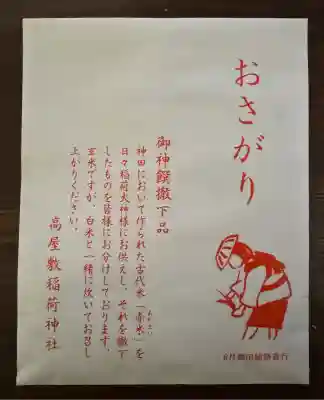 おさがり
御神饌撤下品
神田において作られた古代米「赤米」を
日々稲荷大神様にお供えし、それを撤下
したものを皆様にお分けしております。
玄米ですが、白米と一緒に炊いてお召し
上がりください。
高屋敷稲荷神社